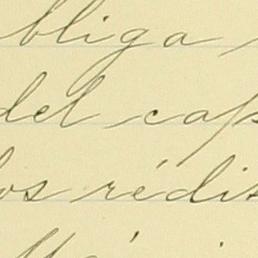 bliga
del cap
os rédit